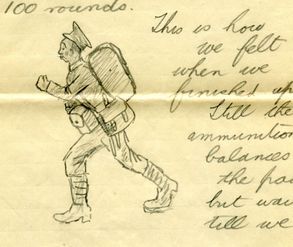 100 rounds.
This is how
we felt
when we
finished up
Still the
ammunition
balances
the pac
but wai
till we